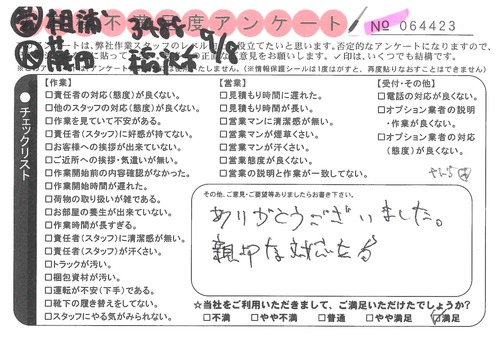 不満度アンケート
No 064423
9/8
アンケートは、弊社作業スタッフのレベル
役立てたいと思います。否定的なアンケートになりますので、
に貼って
意見をお願いします。✓印は、いくつでも結構です。
(※情報保護シールは1度はがすと、再度貼りなおすことはできません)
●チェックリスト
【作業】
□責任者の対応(態度)が良くない。
□他のスタッフの対応(態度)が良くない。
□作業を見ていて不安がある。
□責任者(スタッフ)に好感が持てない。
□お客様への挨拶が出来ていない。
□ご近所への挨拶・気遣いが無い。
□作業開始前の内容確認がなかった。
□作業開始時間が遅れた。
□荷物の取り扱いが雑である。
□お部屋の養生が出来ていない。
□作業時間が長すぎる。
□責任者(スタッフ)に清潔感が無い。
□責任者(スタッフ)が汗くさい。
□トラックが汚い。
□梱包資材が汚い。
□運転が不安(下手)である。
□靴下の履き替えをしてない。
□スタッフにやる気がみられない。
【営業】
□見積もり時間に遅れた。
□見積もり時間が長い。
□営業マンに清潔感が無い。
□営業マンが煙草くさい。
□営業マンが汗くさい。
□営業態度が良くない。
□営業の説明と作業が一致してない。
【受付・その他】
□電話の対応が良くない。
□オプション業者の説明
・作業が良くない。
□オプション業者の対応
(態度)が良くない。
その他、ご意見・ご要望等ありましたらお書き下さい。
ありがとうございました。
親切な対応でした
☆当社をご利用いただきまして、ご満足いただけたでしょうか?
□不満 □やや不満 □普通 □やや満足 ☑満足